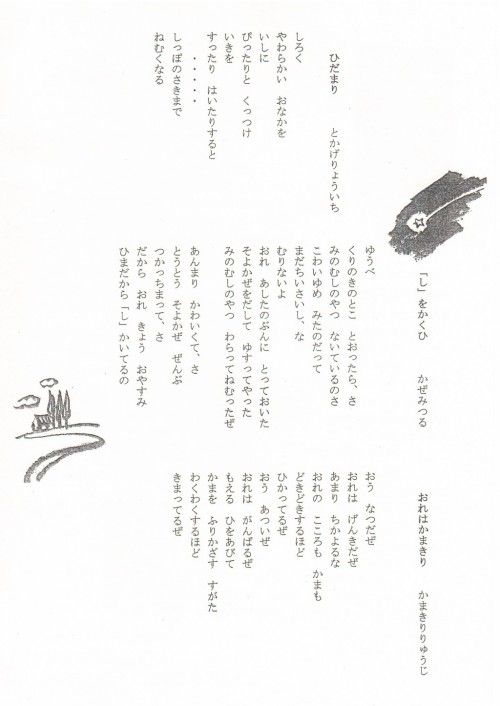 ひだまり　　とかげりょういち
しろく
やわらかい　おなかを
いしに
ぴったりと　くっつけ
いきを
すったり　はいたりすると
・・・・・
しっぽのさきまで
ねむくなる
「し」をかくひ　　かぜみつる
ゆうべ
くりのきのとこ　とおったら、さ
みのむしのやつ　ないているのさ
こわいゆめ　みたのだって
まだちいさいし、な
むりないよ
おれ　あしたのぶんに　とっておいた
そよかぜをだして　ゆすってやった
みのむしのやつ　わらってねむったぜ
あんまり　かわいくて、さ
とうとう　そよかぜ　ぜんぶ
つかっちまって、さ
だから　おれ　きょう　おやすみ
ひまだから「し」かいてるの
おれはかまきり　　かまきりりゅうじ
おう　なつだぜ
おれは　げんきだぜ
あまり　ちかよるな
おれの　こころも　かまも
どきどきするほど
ひかってるぜ
おう　あついぜ
おれは　がんばるぜ
もえる　ひをあびて
かまを　ふりかざす　すがた
わくわくするほど
きまってるぜ